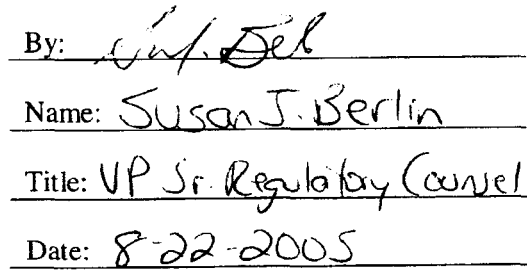 By:
Name: Susan J. Berlin
Title: VP Sr. Regulatory Counsel
Date: 8-22-2005